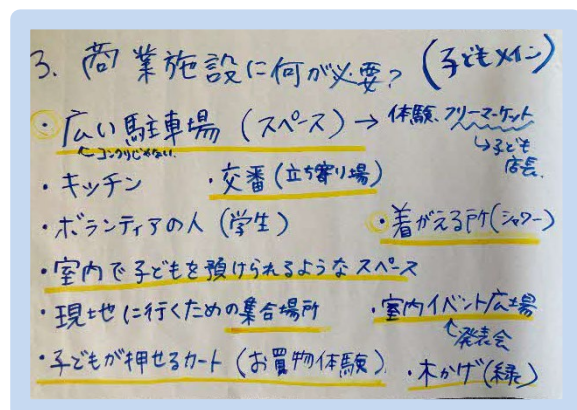 3. 商業施設に何が必要？ （子どもメイン）
・広い駐車場（スペース）→ 体験、フリーマーケット
↑コンクリじゃない
↳子ども店長
・キッチン ・交番（立ち寄り場）
・ボランティアの人（学生） ・着がえる所（シャワー）
・室内で子どもを預けられるようなスペース
・現地に行くための集合場所 ・室内イベント広場
↑発表会
・子どもが押せるカート（お買物体験） ・木かげ（緑）